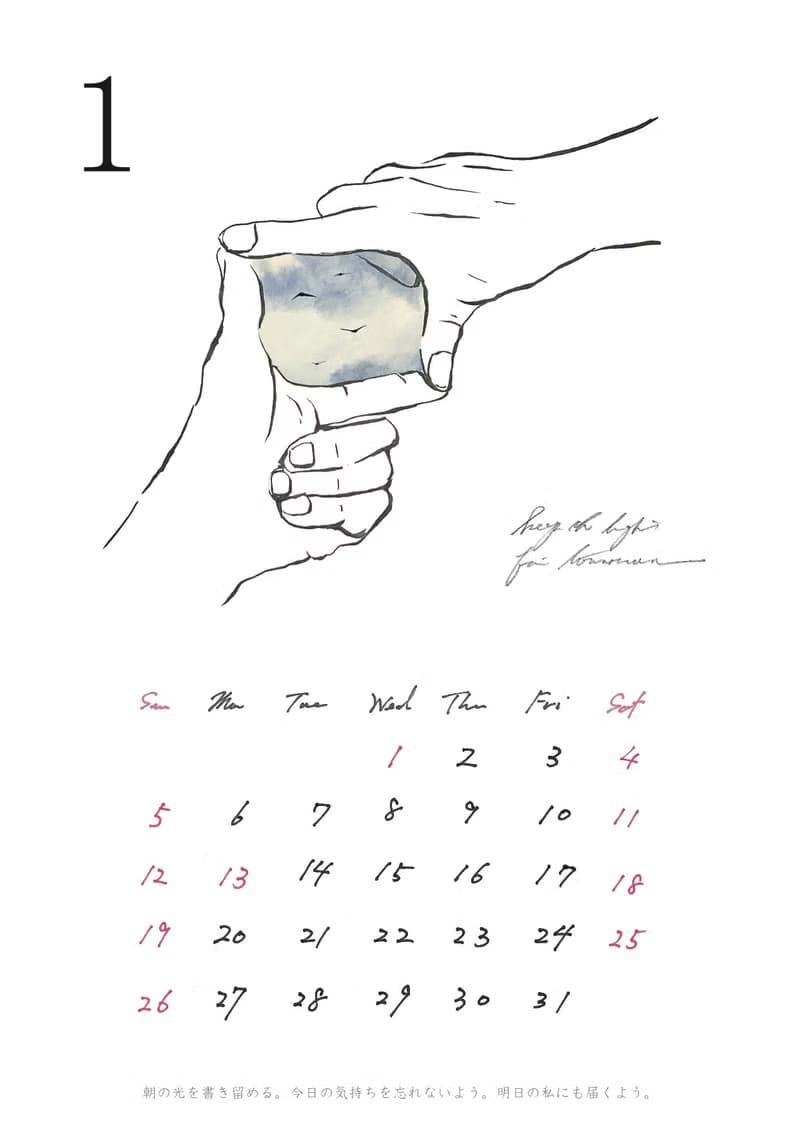 1
Keep the light
for tomorrow
Sun Mon Tue Wed Thu Fri Sat
1 2 3 4
5 6 7 8 9 10 11
12 13 14 15 16 17 18
19 20 21 22 23 24 25
26 27 28 29 30 31
朝の光を書き留める。今日の気持ちを忘れないよう。明日の私にも届くよう。